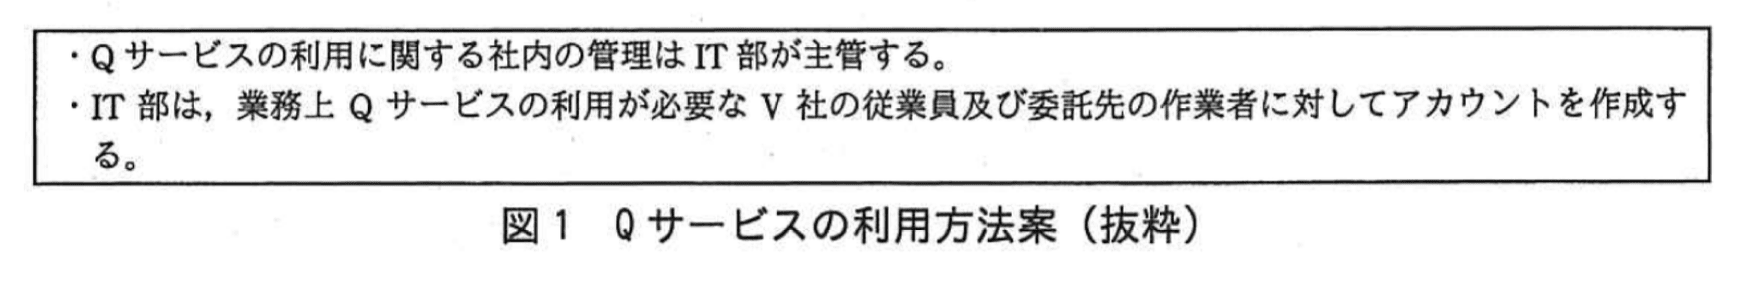 ・Q サービスの利用に関する社内の管理は IT 部が主管する。
・IT 部は，業務上 Q サービスの利用が必要な V 社の従業員及び委託先の作業者に対してアカウントを作成す
る。
図1　Q サービスの利用方法案（抜粋）